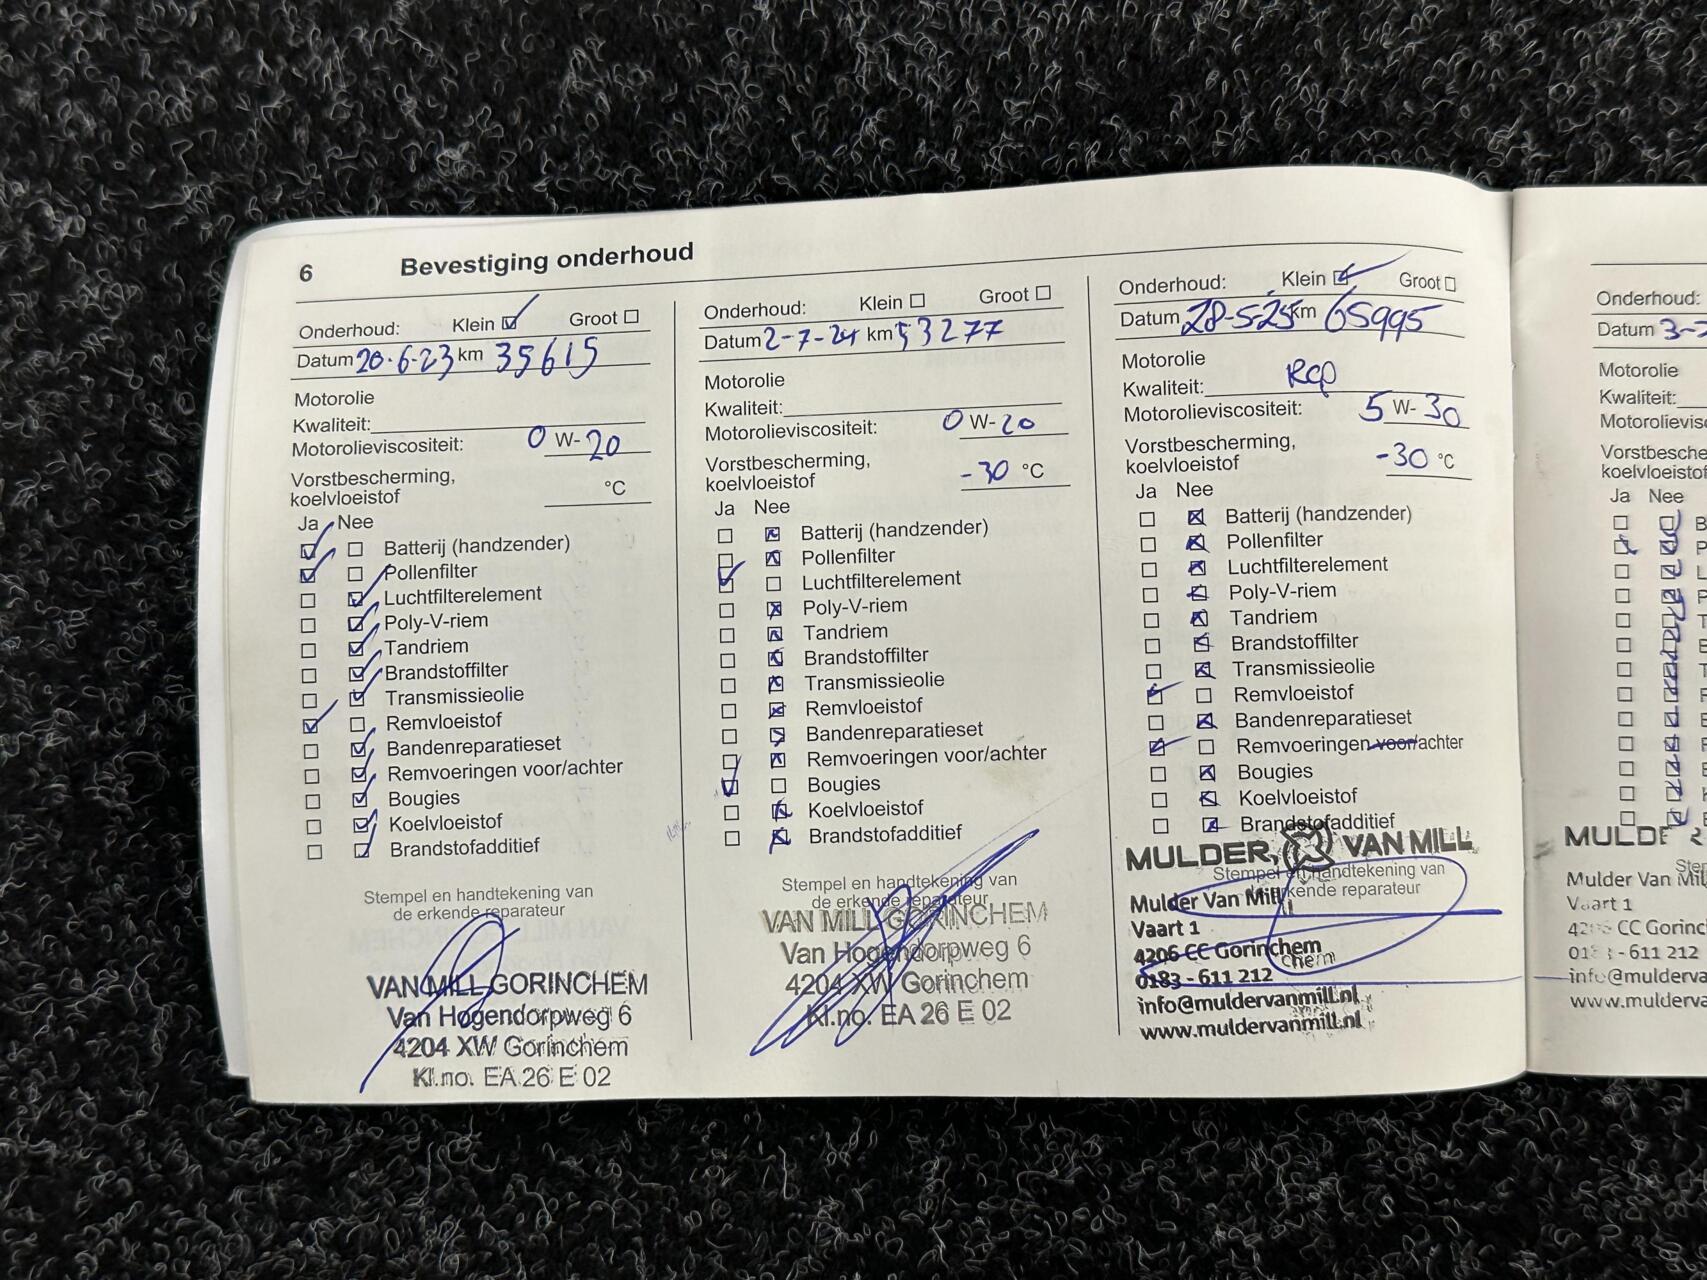 6 Bevestiging onderhoud
Onderhoud: Klein Groot
Datum 20-6-23 km 35615
Motorolie
Kwaliteit:
Motorolieviscositeit: 0 W-20
Vorstbescherming,
koelvloeistof °C
Ja Nee
Batterij (handzender)
Pollenfilter
Luchtfilterelement
Poly-V-riem
Tandriem
Brandstoffilter
Transmissieolie
Remvloeistof
Bandenreparatieset
Remvoeringen voor/achter
Bougies
Koelvloeistof
Brandstofadditief
Stempel en handtekening van
de erkende reparateur
VAN MILL GORINCHEM
Van Hogendorpweg 6
4204 XW Gorinchem
Kl.no. EA 26 E 02
Onderhoud: Klein Groot
Datum 2-7-24 km 53277
Motorolie
Kwaliteit:
Motorolieviscositeit: 0 W-20
Vorstbescherming,
koelvloeistof -30 °C
Ja Nee
Batterij (handzender)
Pollenfilter
Luchtfilterelement
Poly-V-riem
Tandriem
Brandstoffilter
Transmissieolie
Remvloeistof
Bandenreparatieset
Remvoeringen voor/achter
Bougies
Koelvloeistof
Brandstofadditief
Stempel en handtekening van
de erkende reparateur
VAN MILL GORINCHEM
Van Hogendorpweg 6
4204 XW Gorinchem
Kl.no. EA 26 E 02
Onderhoud: Klein Groot
Datum 28-5-25 km 65995
Motorolie
Kwaliteit: Rcp
Motorolieviscositeit: 5 W-30
Vorstbescherming,
koelvloeistof -30 °C
Ja Nee
Batterij (handzender)
Pollenfilter
Luchtfilterelement
Poly-V-riem
Tandriem
Brandstoffilter
Transmissieolie
Remvloeistof
Bandenreparatieset
Remvoeringen voor/achter
Bougies
Koelvloeistof
Brandstofadditief
MULDER, VAN MILL
Stempel en handtekening van
de erkende reparateur
Mulder Van Mill
Vaart 1
4206 CC Gorinchem
chem
0183 - 611 212
info@muldervanmill.nl
www.muldervanmill.nl
Onderhoud:
Datum 3-
Motorolie
Kwaliteit:
Motorolievisc
Vorstbesche
koelvloeistof
Ja Nee
MULDE
Mulder Van Mil
Vaart 1
Gorinc
611 212
info@mulderva
www.mulderva